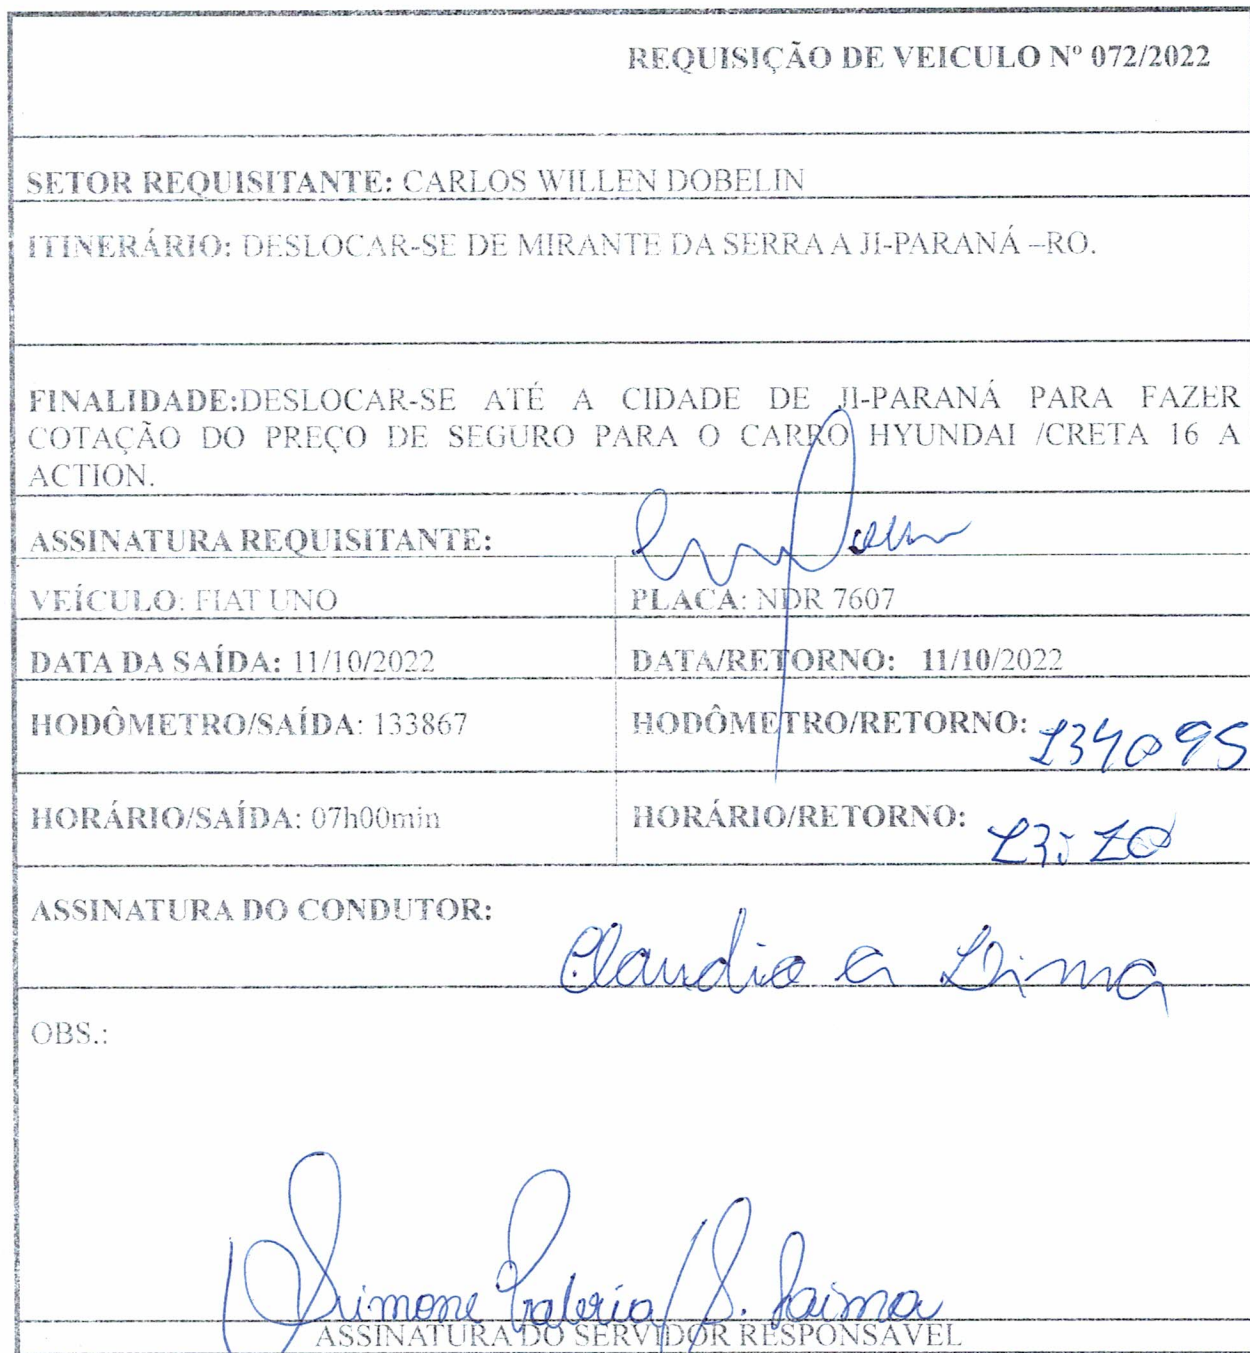 REQUISIÇÃO DE VEICULO Nº 072/2022
SETOR REQUISITANTE: CARLOS WILLEN DOBELIN
ITINERÁRIO: DESLOCAR-SE DE MIRANTE DA SERRA A JI-PARANÁ –RO.
FINALIDADE:DESLOCAR-SE ATÉ A CIDADE DE JI-PARANÁ PARA FAZER
COTAÇÃO DO PREÇO DE SEGURO PARA O CARRO HYUNDAI /CRETA 16 A
ACTION.
ASSINATURA REQUISITANTE:
VEÍCULO: FIAT UNO PLACA: NDR 7607
DATA DA SAÍDA: 11/10/2022 DATA/RETORNO: 11/10/2022
HODÔMETRO/SAÍDA: 133867 HODÔMETRO/RETORNO: 134095
HORÁRIO/SAÍDA: 07h00min HORÁRIO/RETORNO:
ASSINATURA DO CONDUTOR: Claudio a Lima
OBS.:
Simone
ASSINATURA DO SERVIDOR RESPONSAVEL